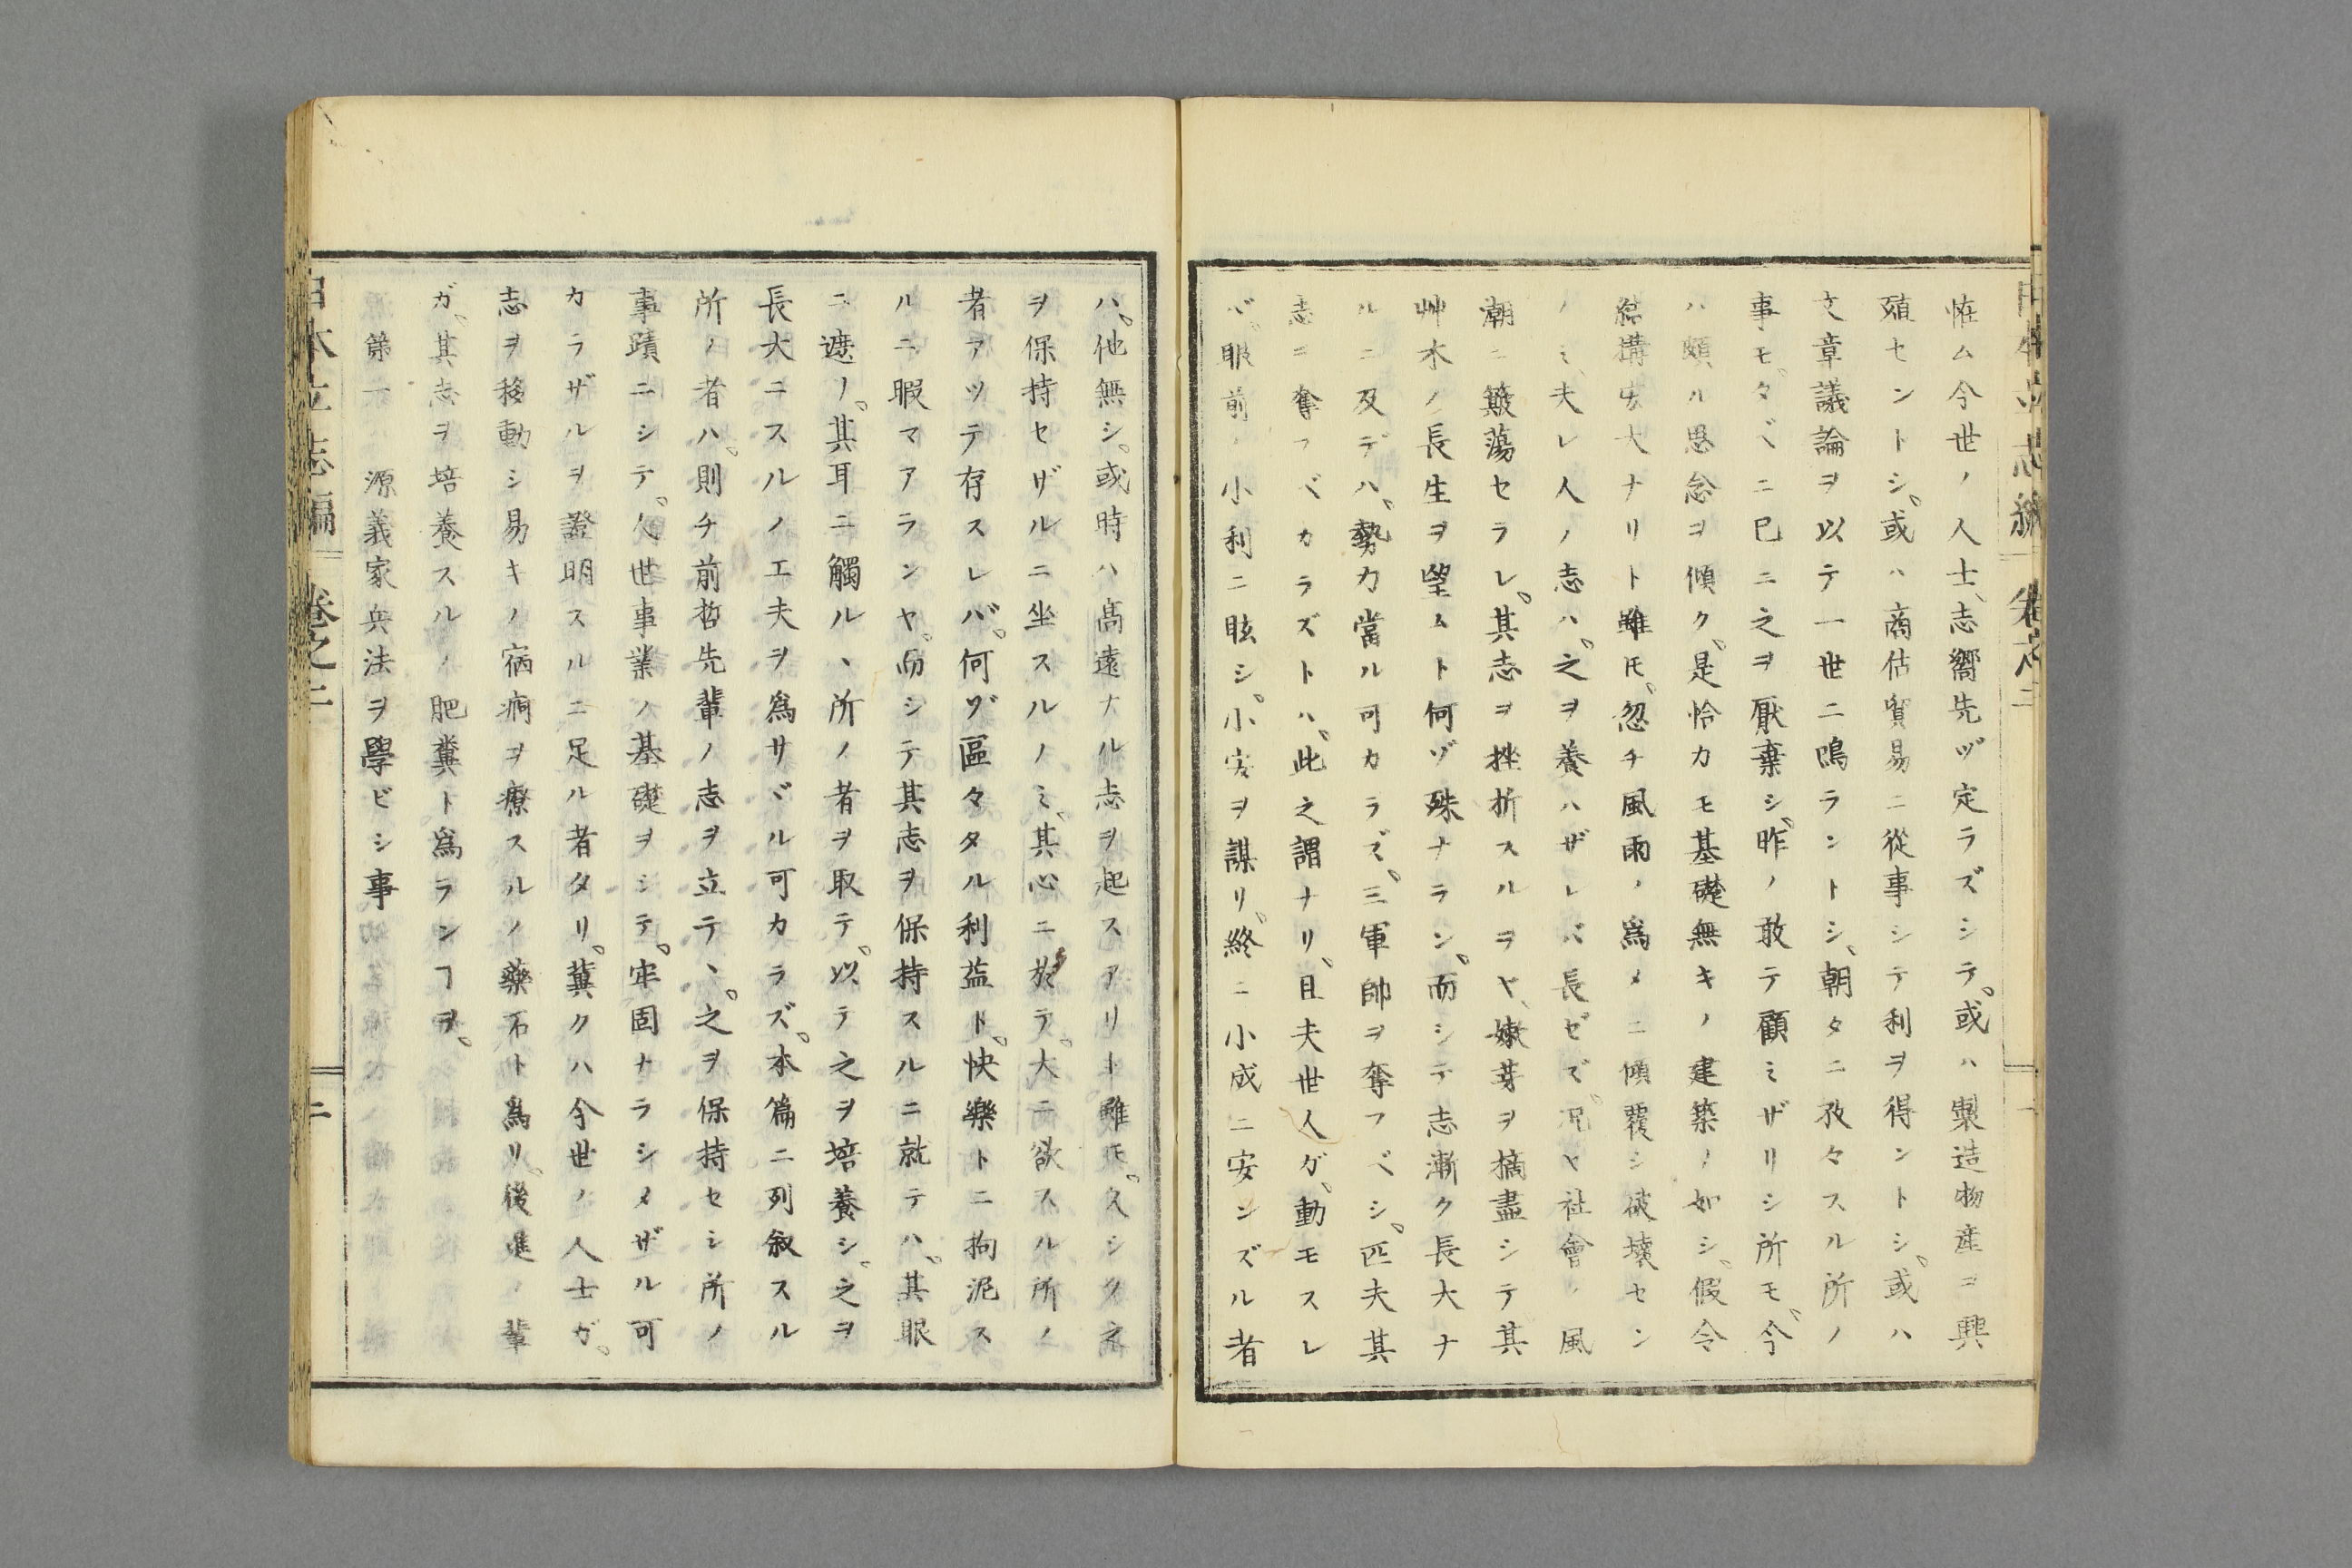 恠ム今世ノ人士、志嚮先ヅ定ラズシテ、或ハ製造物産ヲ興
殖セントシ、或ハ商估貿易ニ從事シテ利ヲ得ントシ、或ハ
文章議論ヲ以テ一世ニ鳴ラントシ、朝タニ孜々スル所ノ
事モ、タベニ已ニ之ヲ厭棄シ、昨ノ敢テ顧ミザリシ所モ、今
ハ頗ル思念ヲ傾ク、是恰カモ基礎無キノ建築ノ如シ、假令
結構宏大ナリト雖𪜈、忽チ風雨ノ爲メニ傾覆シ破壞セン
ノミ、夫レ人ノ志ハ、之ヲ養ハザレバ長ゼズ、况ヤ社會ノ風
潮ニ簸蕩セラレ、其志ヲ挫折スルヲヤ、嫩芽ヲ摘盡シテ其
艸木ノ長生ヲ望ムト何ゾ殊ナラン、而シテ志漸ク長大ナ
ルニ及デハ、勢力當ル可カラズ、三軍帥ヲ奪フベシ、匹夫其
志ヲ奪フベカラズトハ、此之謂ナリ、且夫世人ガ、動モスレ
バ、眼前ノ小利ニ眩シ、小安ヲ謀リ、終ニ小成ニ安ンズル者
ハ、他無シ、或時ハ高遠ナル志ヲ起スアリト雖𪜈、久シク之
ヲ保持セザルニ坐スルノミ、其心ニ於テ、大ニ欲スル所ノ
者アツテ存スレバ、何ゾ區々タル利益ト、快樂トニ拘泥ス
ルニ暇マアランヤ、而シテ其志ヲ保持スルニ就テハ、其眼
ニ遮ノ、其耳ニ觸ルヽ所ノ者ヲ取テ、以テ之ヲ培養シ、之ヲ
長大ニスルノ工夫ヲ爲サヾル可カラズ、本篇ニ列叙スル
所ノ者ハ、則チ前哲先輩ノ志ヲ立テヽ、之ヲ保持セシ所ノ
事蹟ニシテ、人世事業ノ基礎ヲシテ、牢固ナラシメザル可
カラザルヲ證明スルニ足ル者タリ、冀クハ今世ノ人士ガ、
志ヲ移動シ易キノ宿痾ヲ療スルノ藥石ト爲リ、後進ノ輩
ガ、其志ヲ培養スルノ肥糞ト爲ランヿヲ、
第一 源義家兵法ヲ學ビシ事
日本立志編 卷之二 二